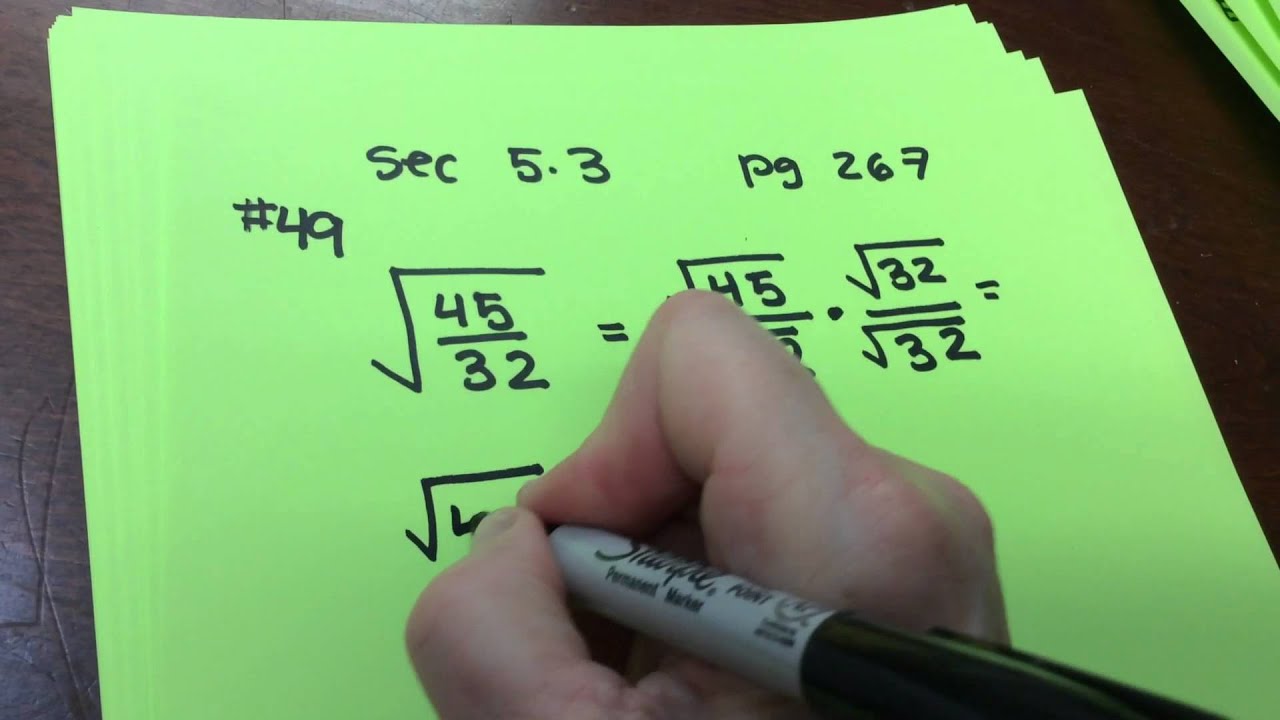 sec 5.3 pg 267
#49
√(45/32) = √45/√32 · √32/√32 =
√4
Sharpie
Permanent Marker
POINT